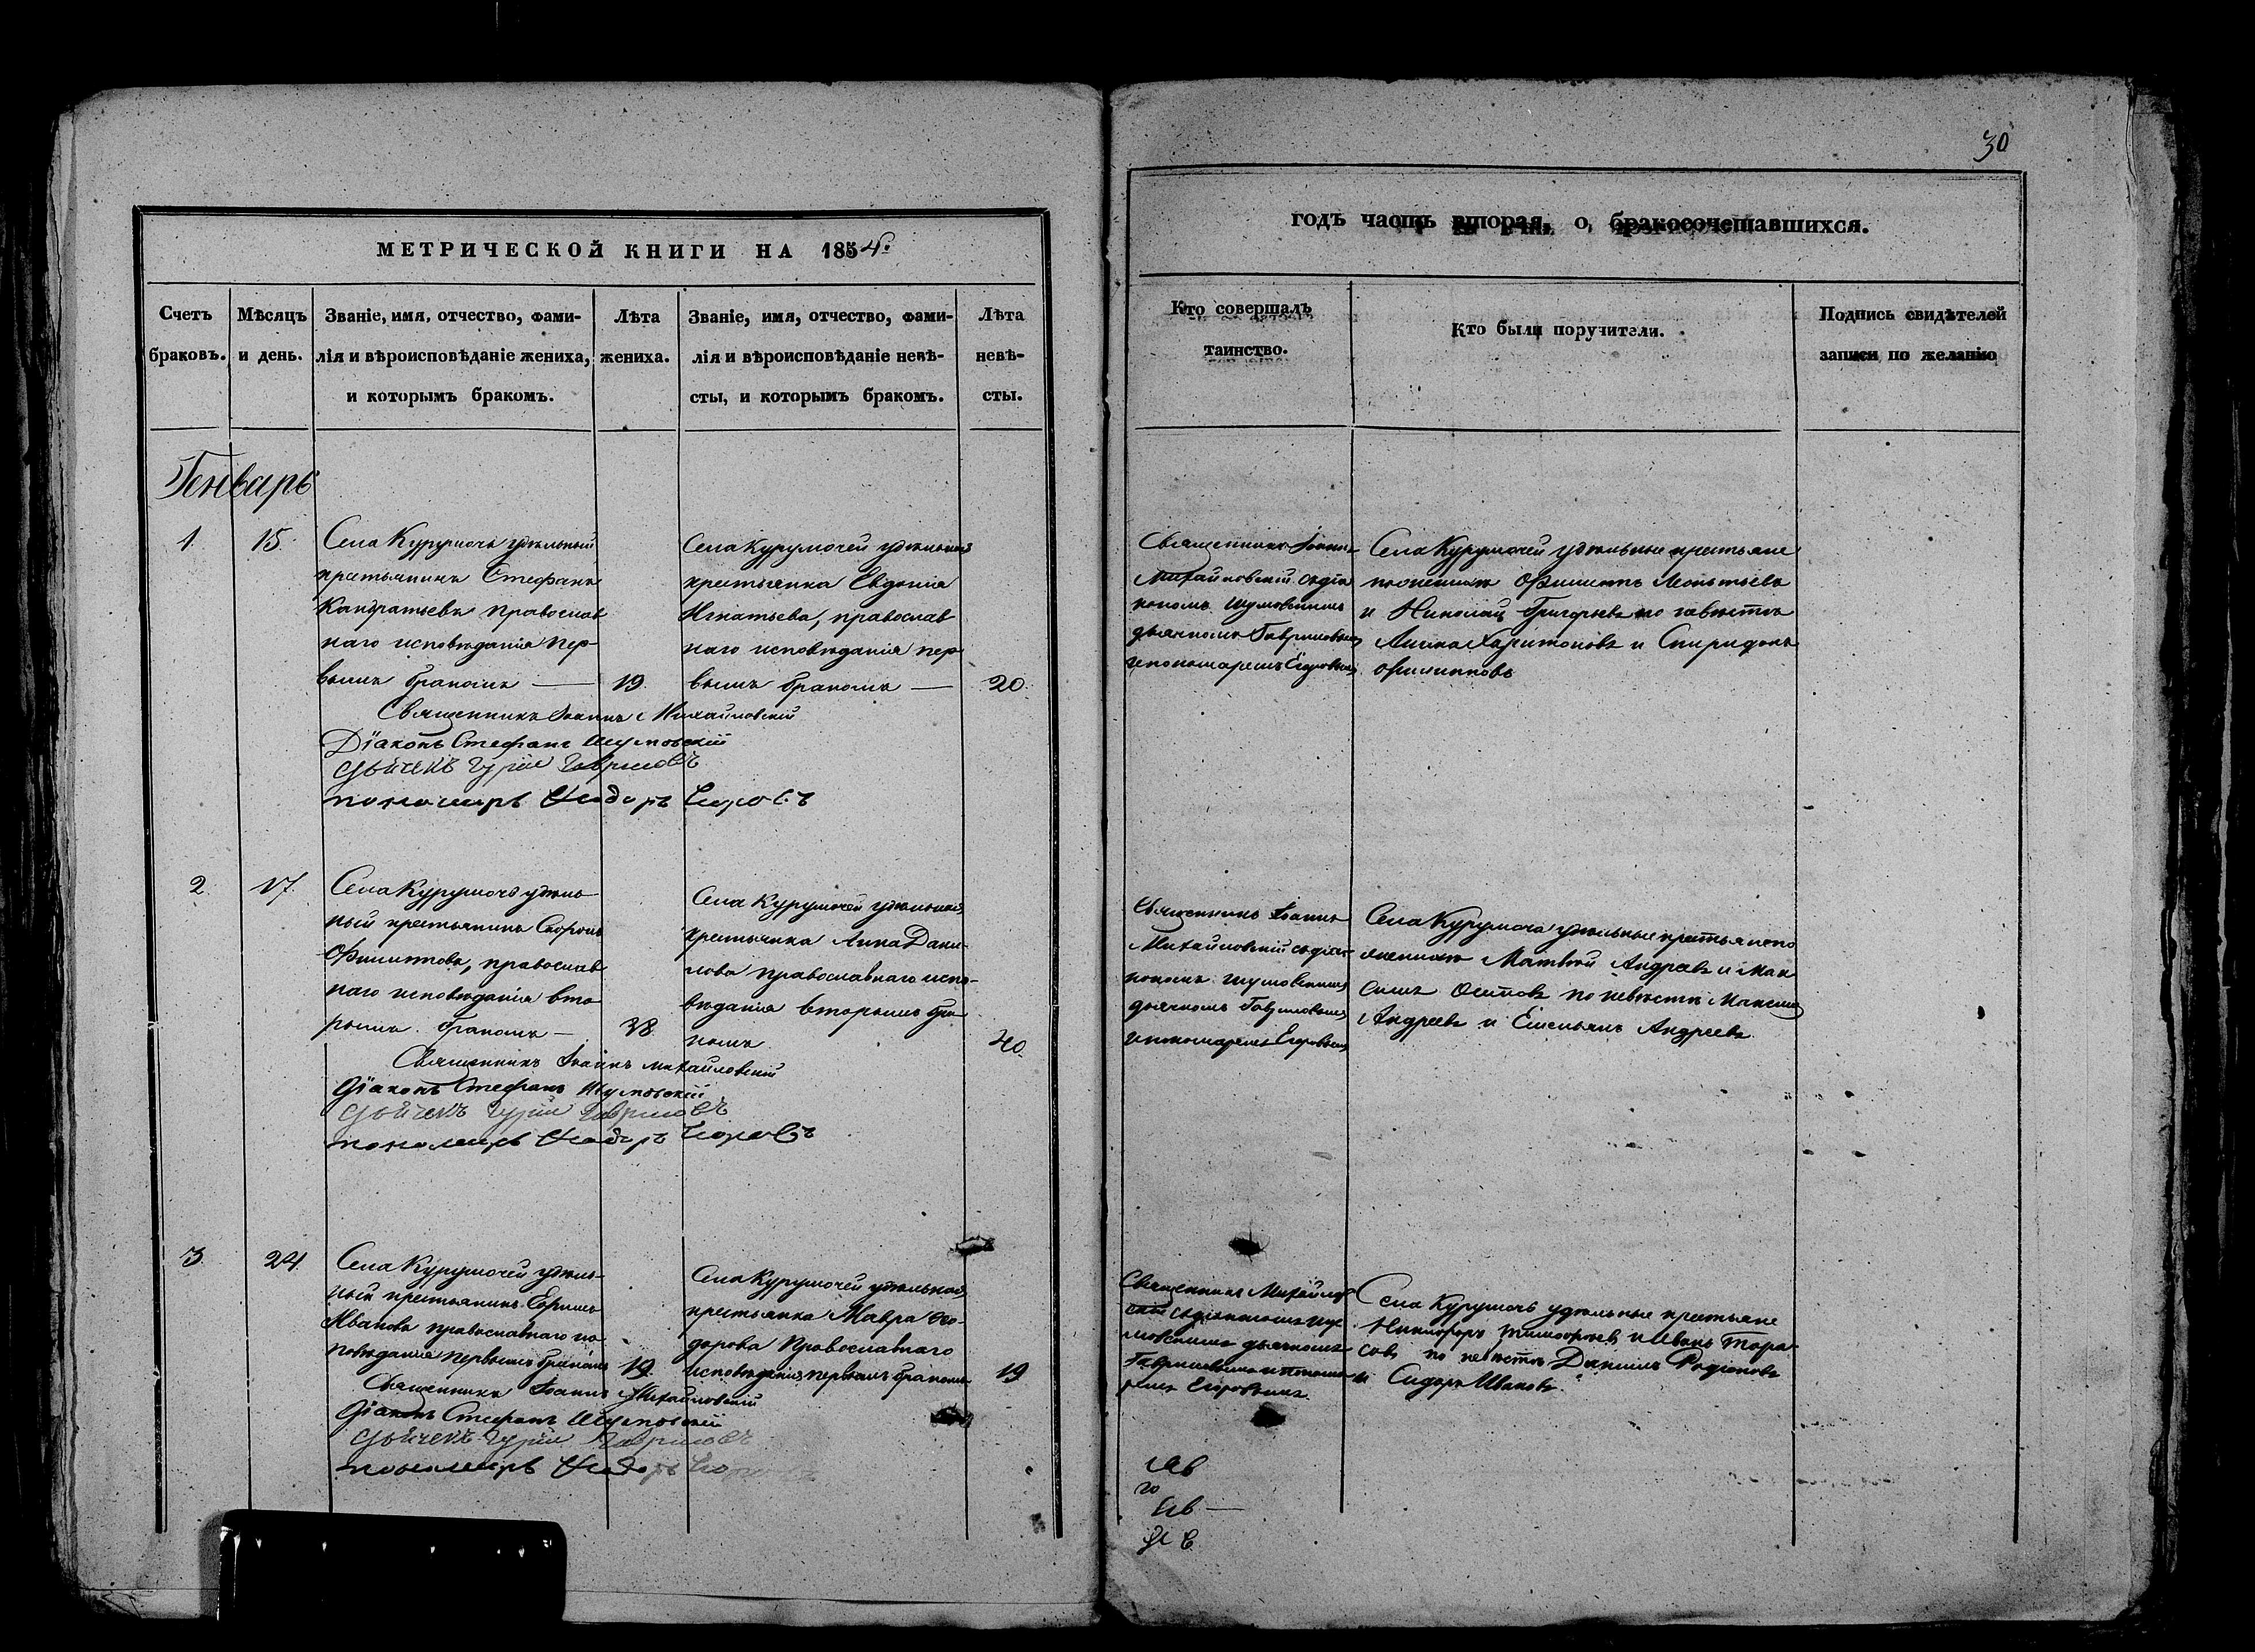 30
МЕТРИЧЕСКОЙ КНИГИ НА 1854:
годъ часть вторая, о бракосочетавшихся.
Счетъ
браковъ.
Мѣсяцъ
и день.
Званіе, имя, отчество, фами-
лія и вѣроисповѣданіе жениха,
и которымъ бракомъ.
Лѣта
жениха.
Званіе, имя, отчество, фами-
лія и вѣроисповѣданіе невѣ-
сты, и которымъ бракомъ.
Лѣта
невѣ-
сты.
Кто совершалъ
таинство.
Кто были поручители.
Подпись свидѣтелей
записи по желанію
Генварь
1.
15.
Села Курумоча удѣльный
крестьянинъ Стефанъ
Кандратьевъ православ
наго исповѣданія пер-
вымъ бракомъ —
19.
Села Курумочей удѣльная
крестьянка Евдокія
Игнатьева, православ
наго исповѣданія пер
вымъ бракомъ —
20.
Священникъ Іоаннъ
Михайловскій съ діа
кономъ Шумовскимъ
дьячкомъ Гавриловымъ
и пономаремъ Егоровымъ
Села Курумочей удѣльные крестьяне
по женихѣ Филиппъ Леонтьевъ
и Николай Григорьевъ по невѣстѣ
Харитоновъ и Спиридонъ
Филипповъ
Священникъ Іоаннъ Михайловскій
Діаконъ Стефанъ Шумовскій
Дьячекъ Гурій Гавриловъ
пономарь Егоровъ
2.
17.
Села Курумоча удѣль
ный крестьянинъ Софронъ
Филипповъ, православ
наго исповѣданія вто
рымъ бракомъ —
38.
Села Курумочей удѣльная
крестьянка Анна Дани-
лова православнаго испо-
вѣданія вторымъ бра
комъ
40.
Священникъ Іоаннъ
Михайловскій съ діа
кономъ Шумовскимъ
дьячкомъ Гавриловымъ
и пономаремъ Егоровымъ
Села Курумоча удѣльные крестьяне по
женихѣ Матвей Андреевъ и Мак
симъ Осиповъ по невѣстѣ Максимъ
Андреевъ и Емельянъ Андреевъ.
Священникъ Іоаннъ Михайловскій
Діаконъ Стефанъ Шумовскій
Дьячекъ Гурій Гавриловъ
пономарь Егоровъ
3.
24.
Села Курумочей удѣль-
ный крестьянинъ Ефимъ
Ивановъ православнаго ис
повѣданія первымъ бракомъ
19.
Села Курумочей удѣльная
крестьянка Мавра Ѳео-
дорова Православнаго
исповѣданія первымъ бракомъ
19
Священникъ Михайлов
скій съ діакономъ Шу
мовскимъ дьячкомъ
Гавриловымъ и понома
ремъ Егоровымъ.
Села Курумочь удѣльные крестьяне
Никифоръ Тимофеевъ и Иванъ Тара
совъ по невѣстѣ Даніилъ Родіоновъ
и Сидоръ Ивановъ.
Священникъ Іоаннъ Михайловскій
Діаконъ Стефанъ Шумовскій
Дьячекъ Гурій Гавриловъ
пономарь